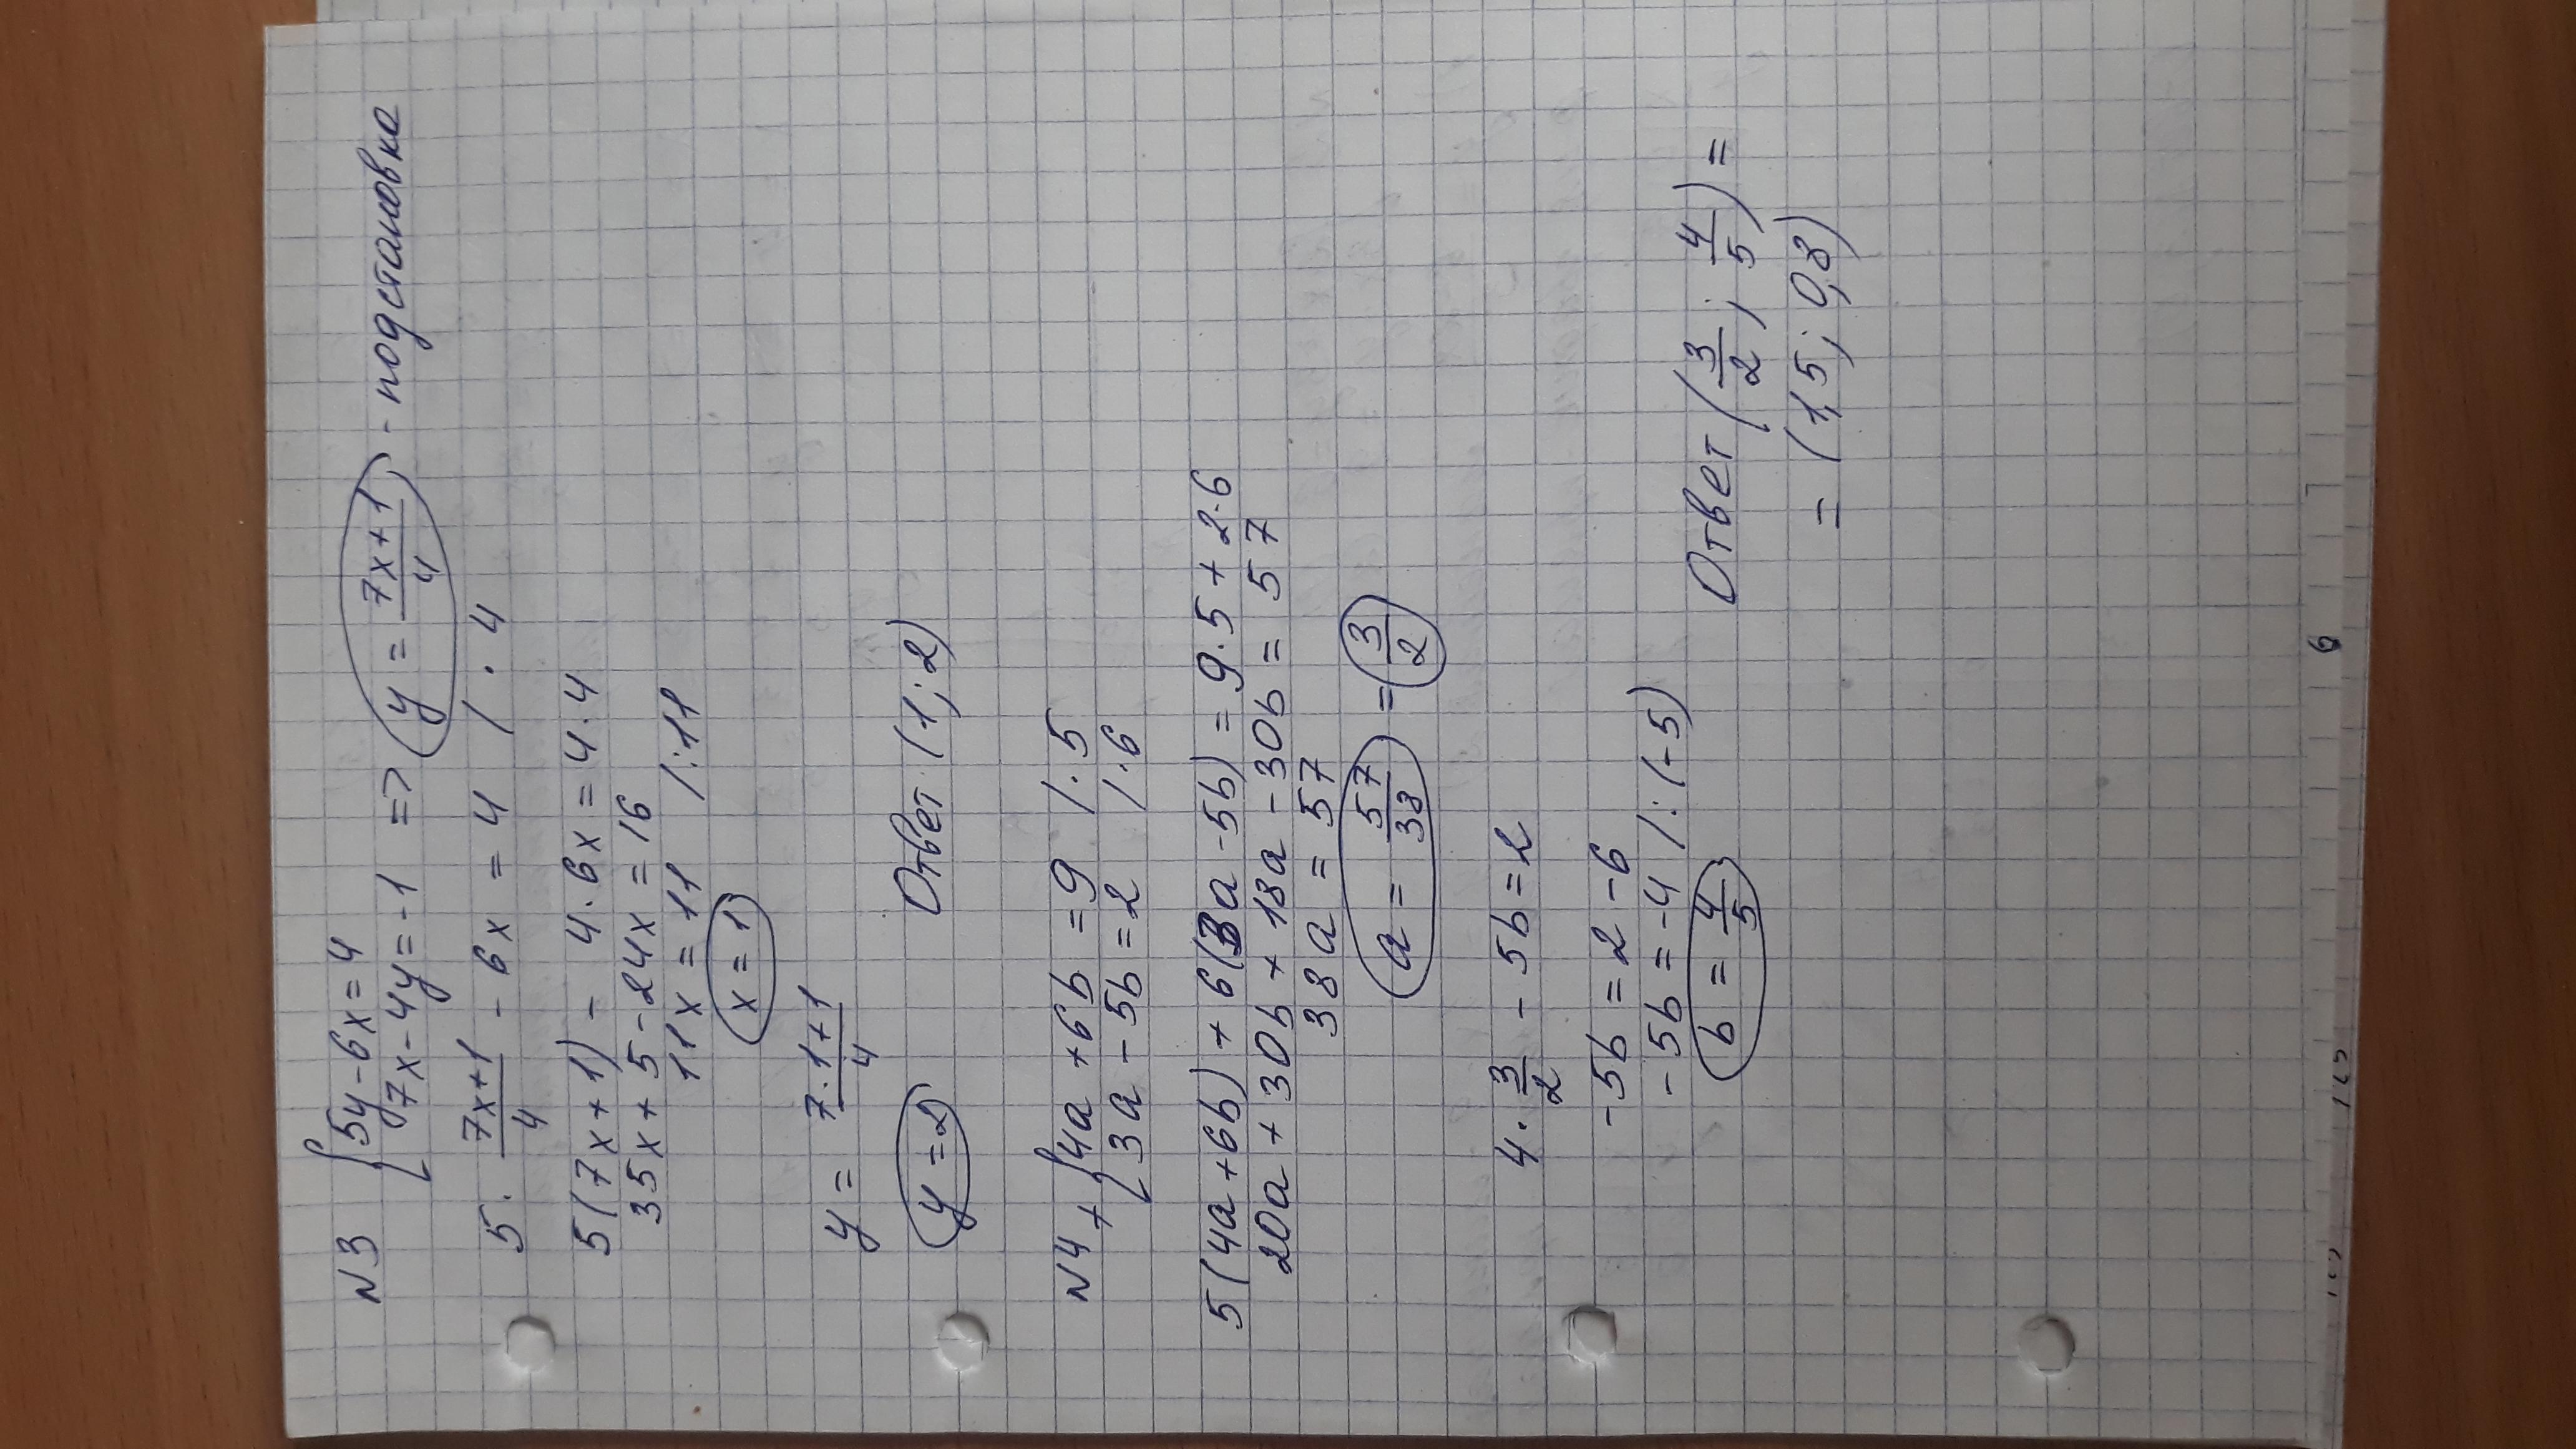 N3 { 5y - 6x = 4
7x - 4y = -1 => y = (7x+1)/4 - подстановка
5 · (7x+1)/4 - 6x = 4 / · 4
5(7x+1) - 4·6x = 4·4
35x + 5 - 24x = 16
11x = 11 /:11
x = 1
y = (7·1+1)/4
y = 2
Ответ (1; 2)
N4 + { 4a + 6b = 9 /·5
3a - 5b = 2 /·6
5(4a+6b) + 6(3a-5b) = 9·5 + 2·6
20a + 30b + 18a - 30b = 57
38a = 57
a = 57/38 = 3/2
4 · 3/2 - 5b = 2
-5b = 2 - 6
-5b = -4 /:(-5)
b = 4/5
Ответ (3/2; 4/5) =
= (1,5; 0,8)
6